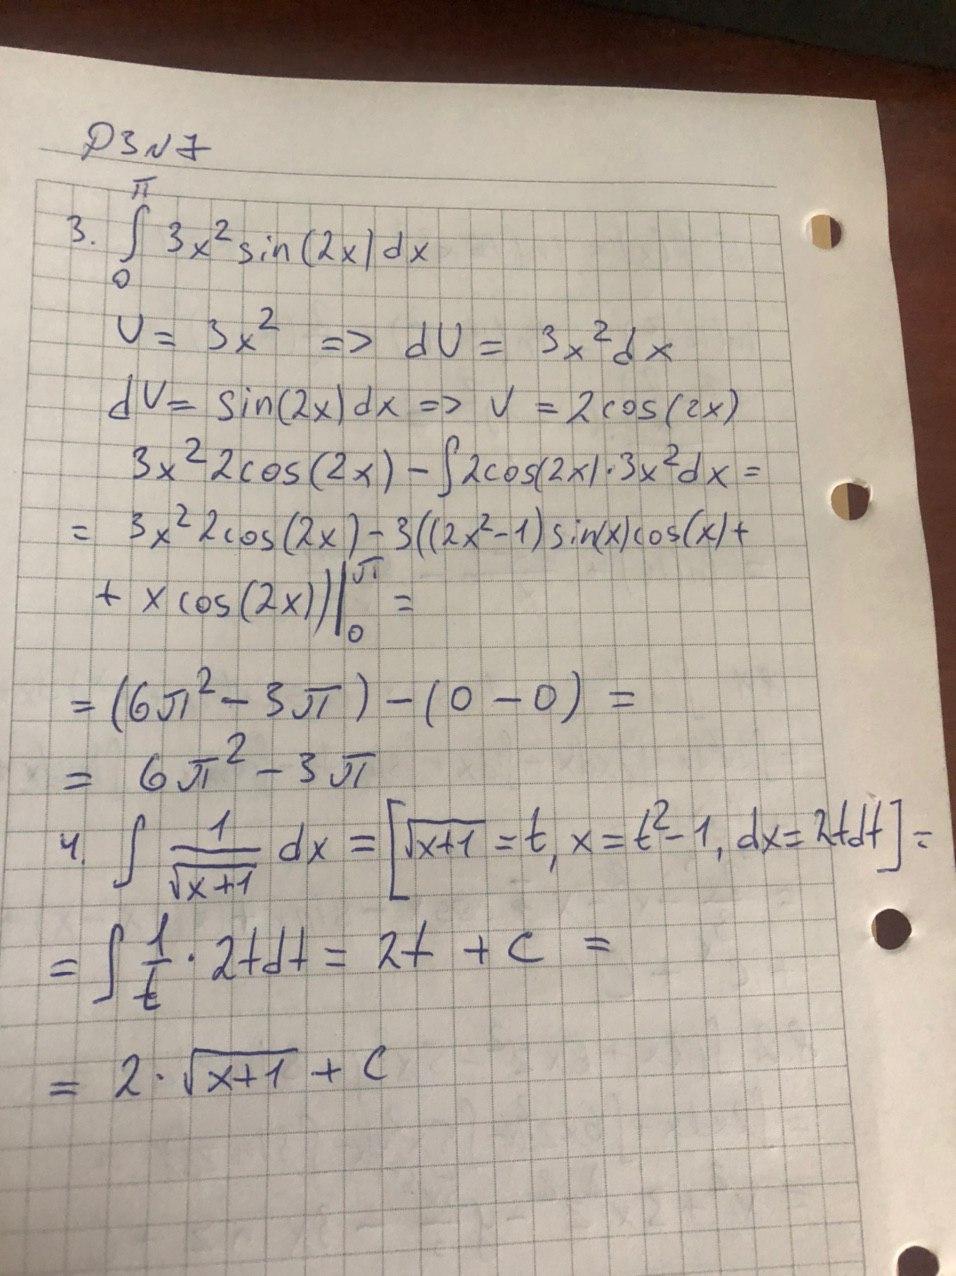 ДЗ N7
3. ∫₀^π 3x² sin(2x) dx
U = 3x² => dU = 3x²dx
dV = sin(2x)dx => V = 2cos(2x)
3x² 2cos(2x) - ∫2cos(2x)·3x²dx =
= 3x² 2cos(2x) - 3((2x²-1)sin(x)cos(x)+
+ x cos(2x))|₀^π =
= (6π² - 3π) - (0 - 0) =
= 6π² - 3π
4. ∫ 1/√(x+1) dx = [√(x+1) = t, x = t²-1, dx = 2tdt] =
= ∫ 1/t · 2tdt = 2t + C =
= 2·√(x+1) + C